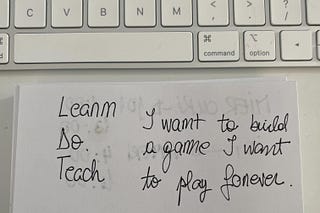 C V B N M < , > . ? /
⌘ command ⌥ option
Learn I want to build
Do. a game I want
Teach to play forever.